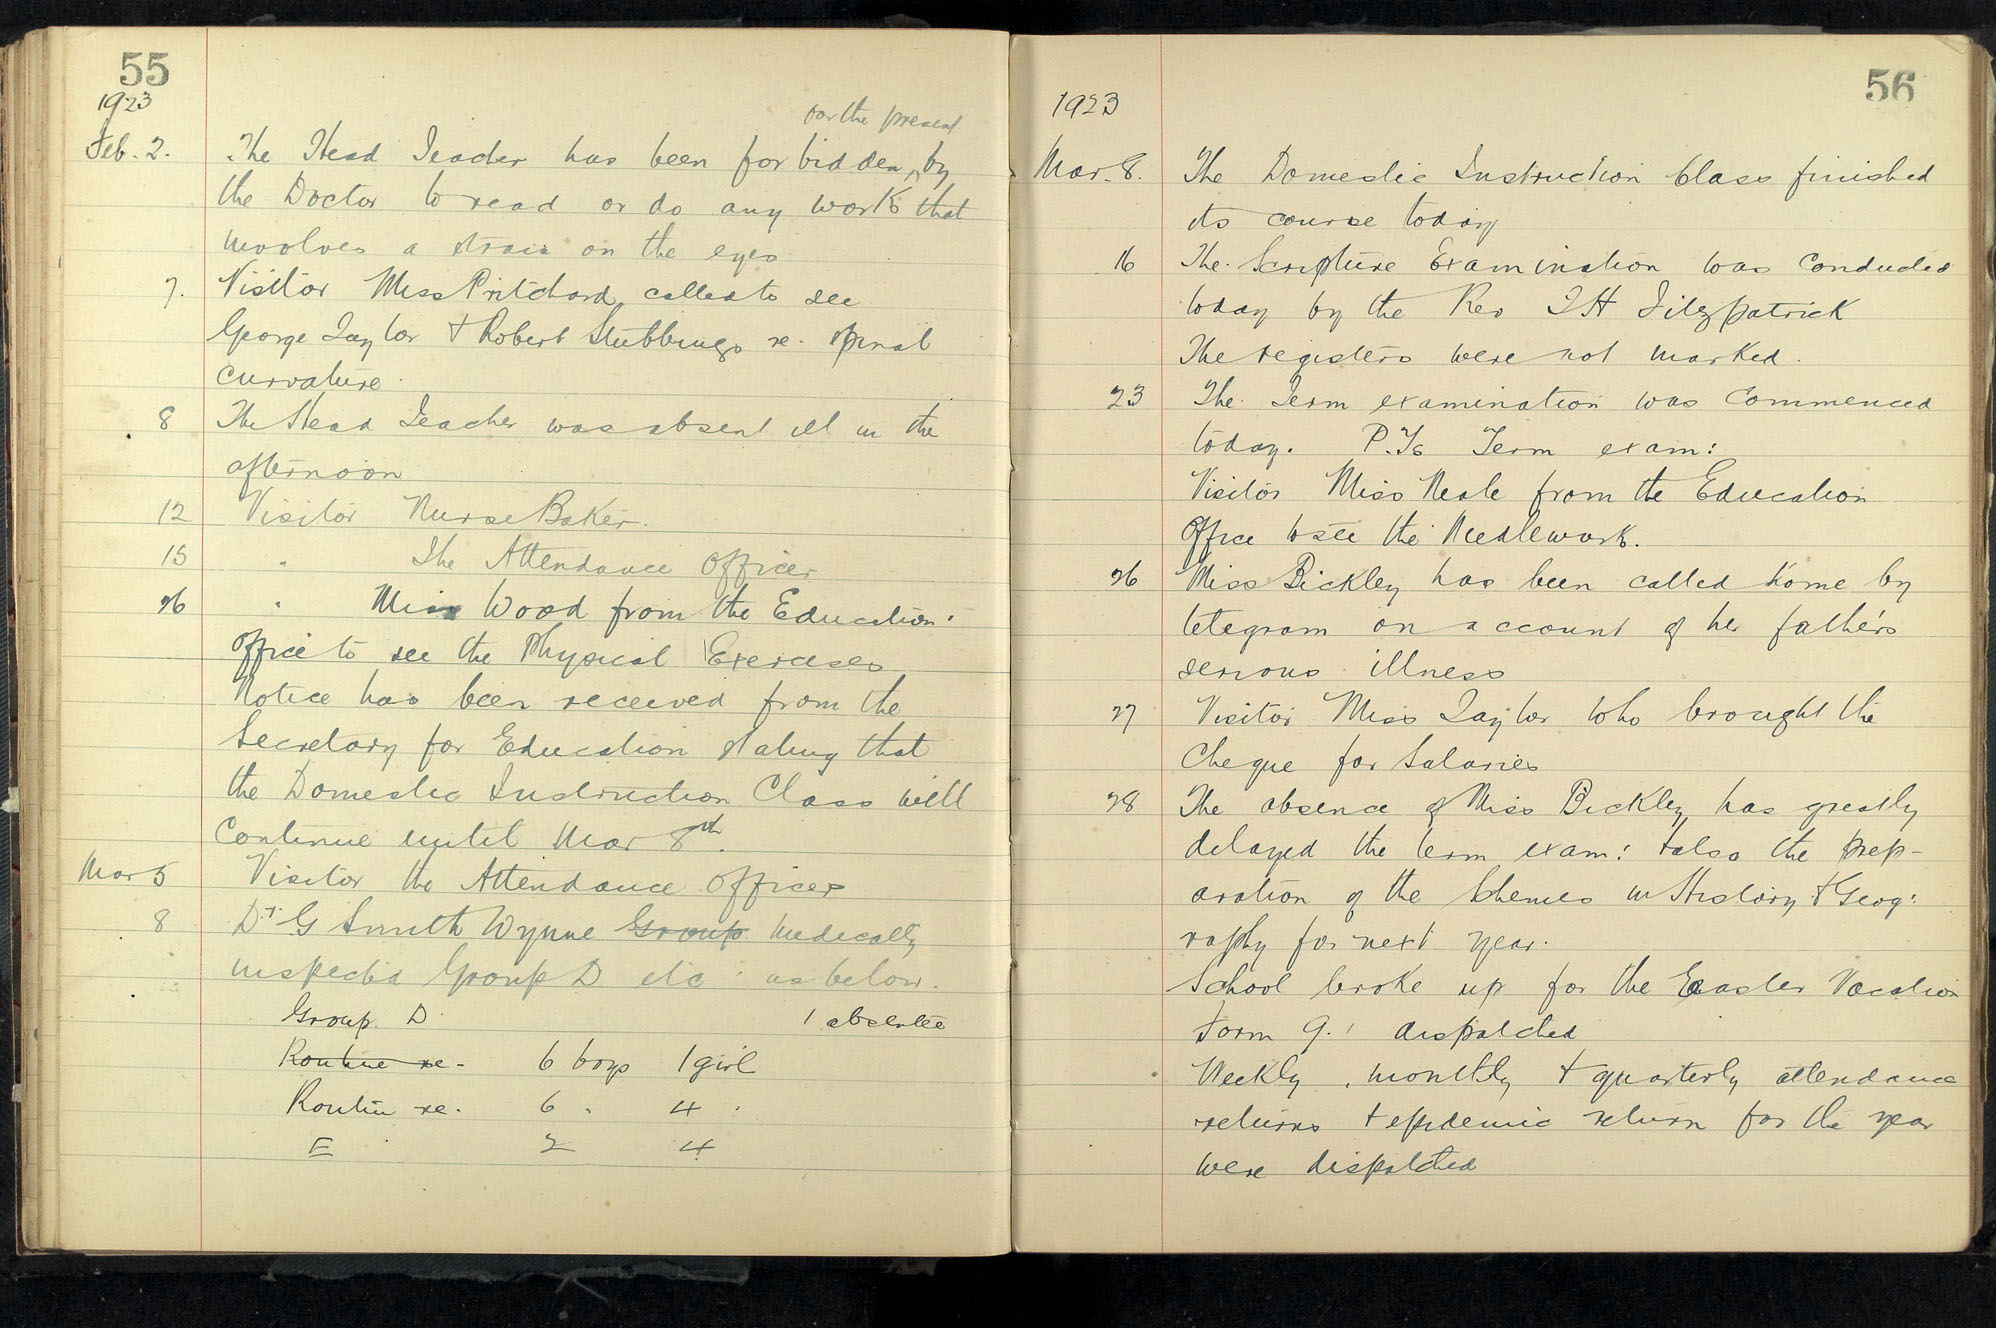 55
1923
for the present
Feb. 2. The Head Teacher has been forbidden, by
the Doctor to read or do any work that
involves a strain on the eyes
7. Visitor Miss Pritchard called to see
George Taylor + Robert Stubbings re. spinal
curvature.
8 The Head Teacher was absent ill in the
afternoon
12 Visitor Nurse Baker.
15 " The Attendance Officer
26 " Miss Wood from the Education
Office to see the Physical Exercises
Notice has been received from the
Secretary for Education stating that
the Domestic Instruction Class will
continue until Mar 8th.
Mar 5 Visitor the Attendance Officer
8 Dr G Smith Wynne Group medically
inspected Group D etc as below.
Group D 1 absentee
Routine re. 6 boys 1 girl
Routin re. 6 " 4 "
E 2 4
56
1923
Mar. 8. The Domestic Instruction Class finished
its course today
16 The Scripture Examination was conducted
today by the Rev T H Fitzpatrick
The registers were not marked.
23 The Term examination was commenced
today. P.Ts Term exam:
Visitor Miss Neale from the Education
Office to see the Needlework.
26 Miss Bickley has been called home by
telegram on account of her father's
serious illness
27 Visitor Miss Taylor who brought the
Cheque for Salaries
28 The absence of Miss Bickley has greatly
delayed the term exam: + also the prep-
aration of the Schemes in History + Geog:
raphy for next year.
School broke up for the Easter Vacation
Form 9. dispatched
Weekly, monthly + quarterly attendance
returns + epidemic return for the year
were dispatched